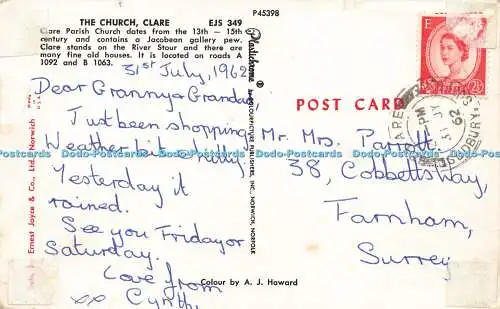 P45398
THE CHURCH, CLARE EJS 349
Clare Parish Church dates from the 13th - 15th
century and contains a Jacobean gallery pew.
Clare stands on the River Stour and there are
many fine old houses. It is located on roads A
1092 and B 1063.
31st July, 1962
Dear Granny & Grandad,
Just been shopping
Weather bit chilly
Yesterday it
rained.
See you Friday or
Saturday.
Love from
xx
Plastichrome ®
POST CARD
Mr. Mrs. Parrott,
38, Cobbetts Way,
Farnham,
Surrey
Colour by A. J. Howard
Ernest Joyce & Co., Ltd., Norwich
Postcards Do-Do Postcards